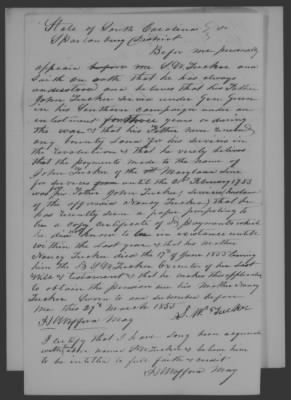 State of South Carolina } ss
Spartanburg District
Before me personally
appears before me S. W. Tucker and
saith on oath that he has always
understood and believes that his Father
John Tucker served under Gen Green
in his Southern campaign under an
enlistment for three years or during
the war & that his Father never received
any bounty Land for his services in
the revolution & that he verily believes
that the payments made to the name of
John Tucker of the Maryland Line
for services until the February 1783
was his Father John Tucker
of the Nancy Tucker) that he
has recently seen a paper purporting to
be a copy Certificate of payments which
he did not know to be in existence until
within the last year & that his Mother
Nancy Tucker died the 17th of June 1853 leaving
him the S. W. Tucker Executor of her last
Will & testament & that he makes this affidavit
to obtain the pension due his Mother Nancy
Tucker Sworn to and subscribed before
me this 29th March 1855
J Wofford Mag S. W. Tucker
I certify that I have long been acquainted
with above named S W Tucker & believe him
to be entitled to full faith & credit
J Wofford Mag